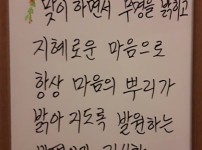 맞이 하면서 뚜명을 밝히고
지혜로운 마음으로
항상 마음의 뿌리가
밝아 지도록 발원하는